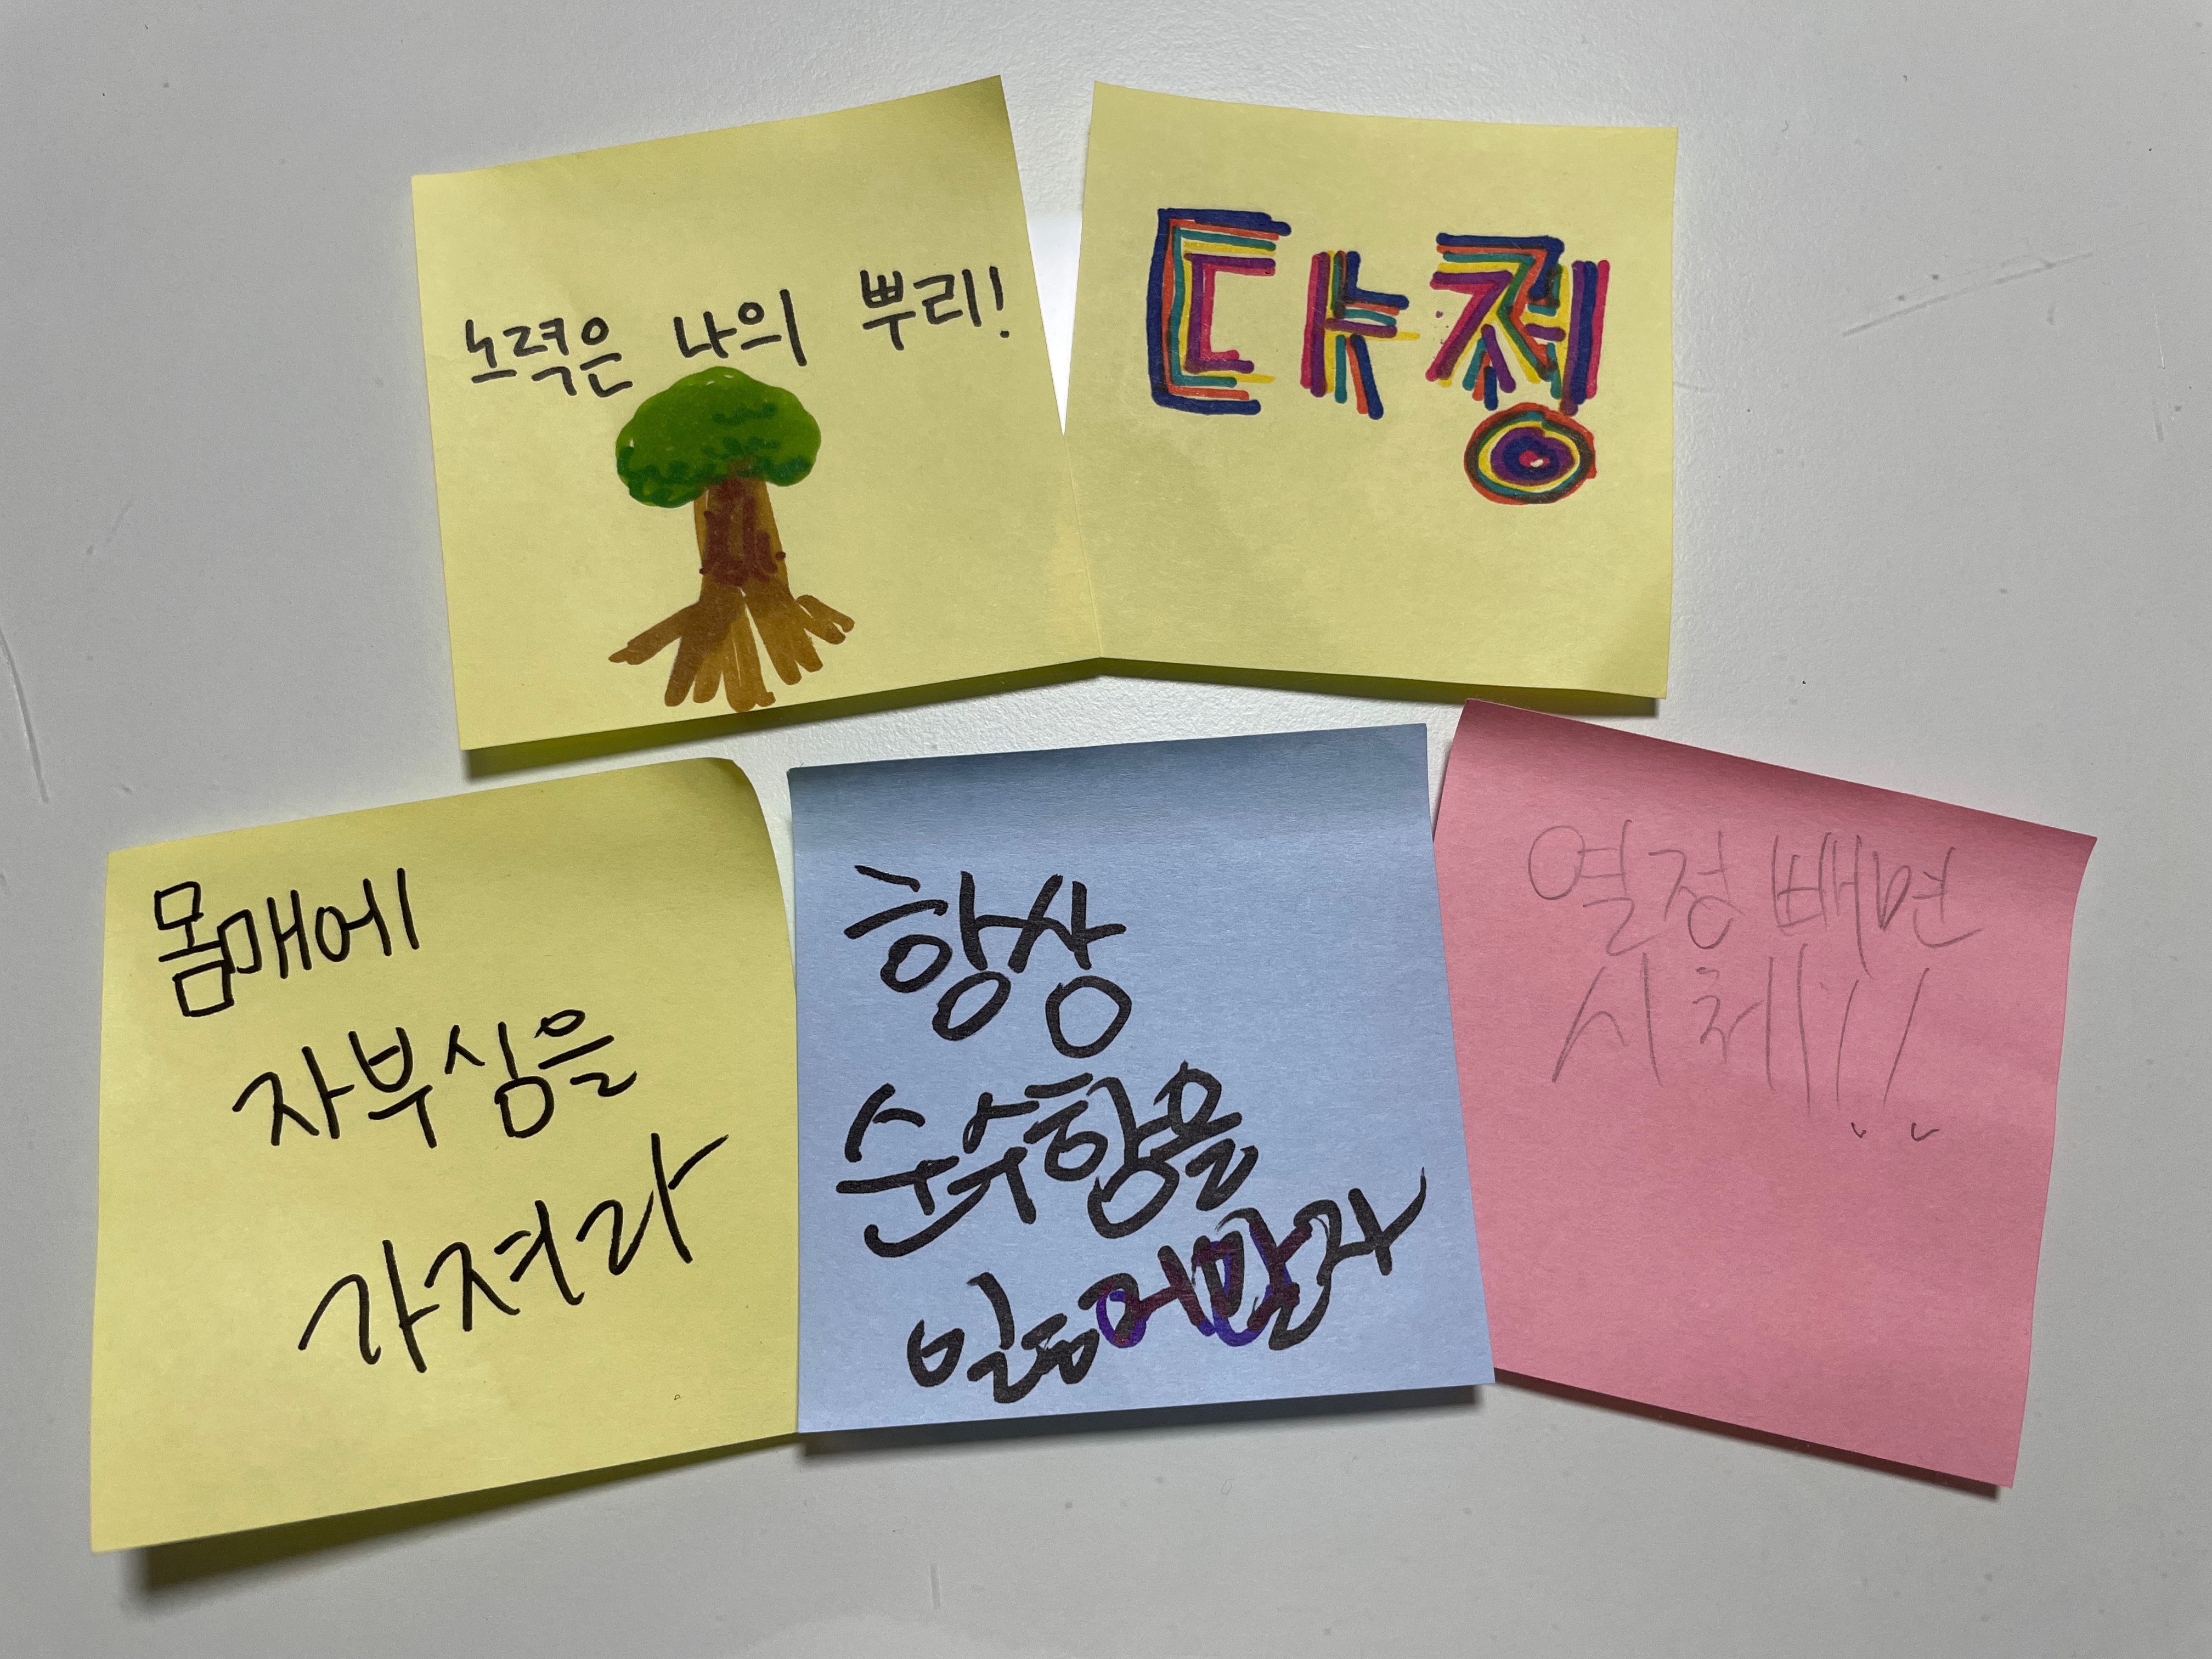 노력은 나의 뿌리!
다정
몸매에
자부심을
가져라
항상
순수함을
잃어말라
열정 빼면
시체!!